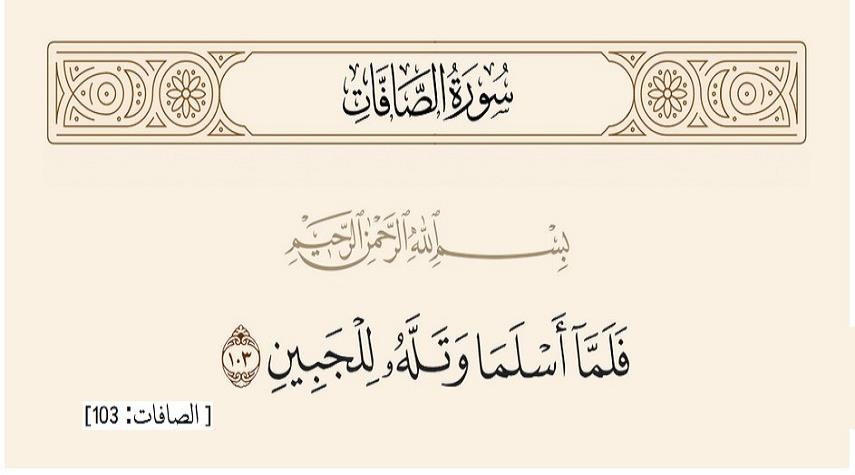 سُورَةُ الصَّافَّاتِ
بِسْمِ اللَّهِ الرَّحْمَٰنِ الرَّحِيمِ
فَلَمَّآ أَسْلَمَا وَتَلَّهُۥ لِلْجَبِينِ ١٠٣
[ الصافات: 103]